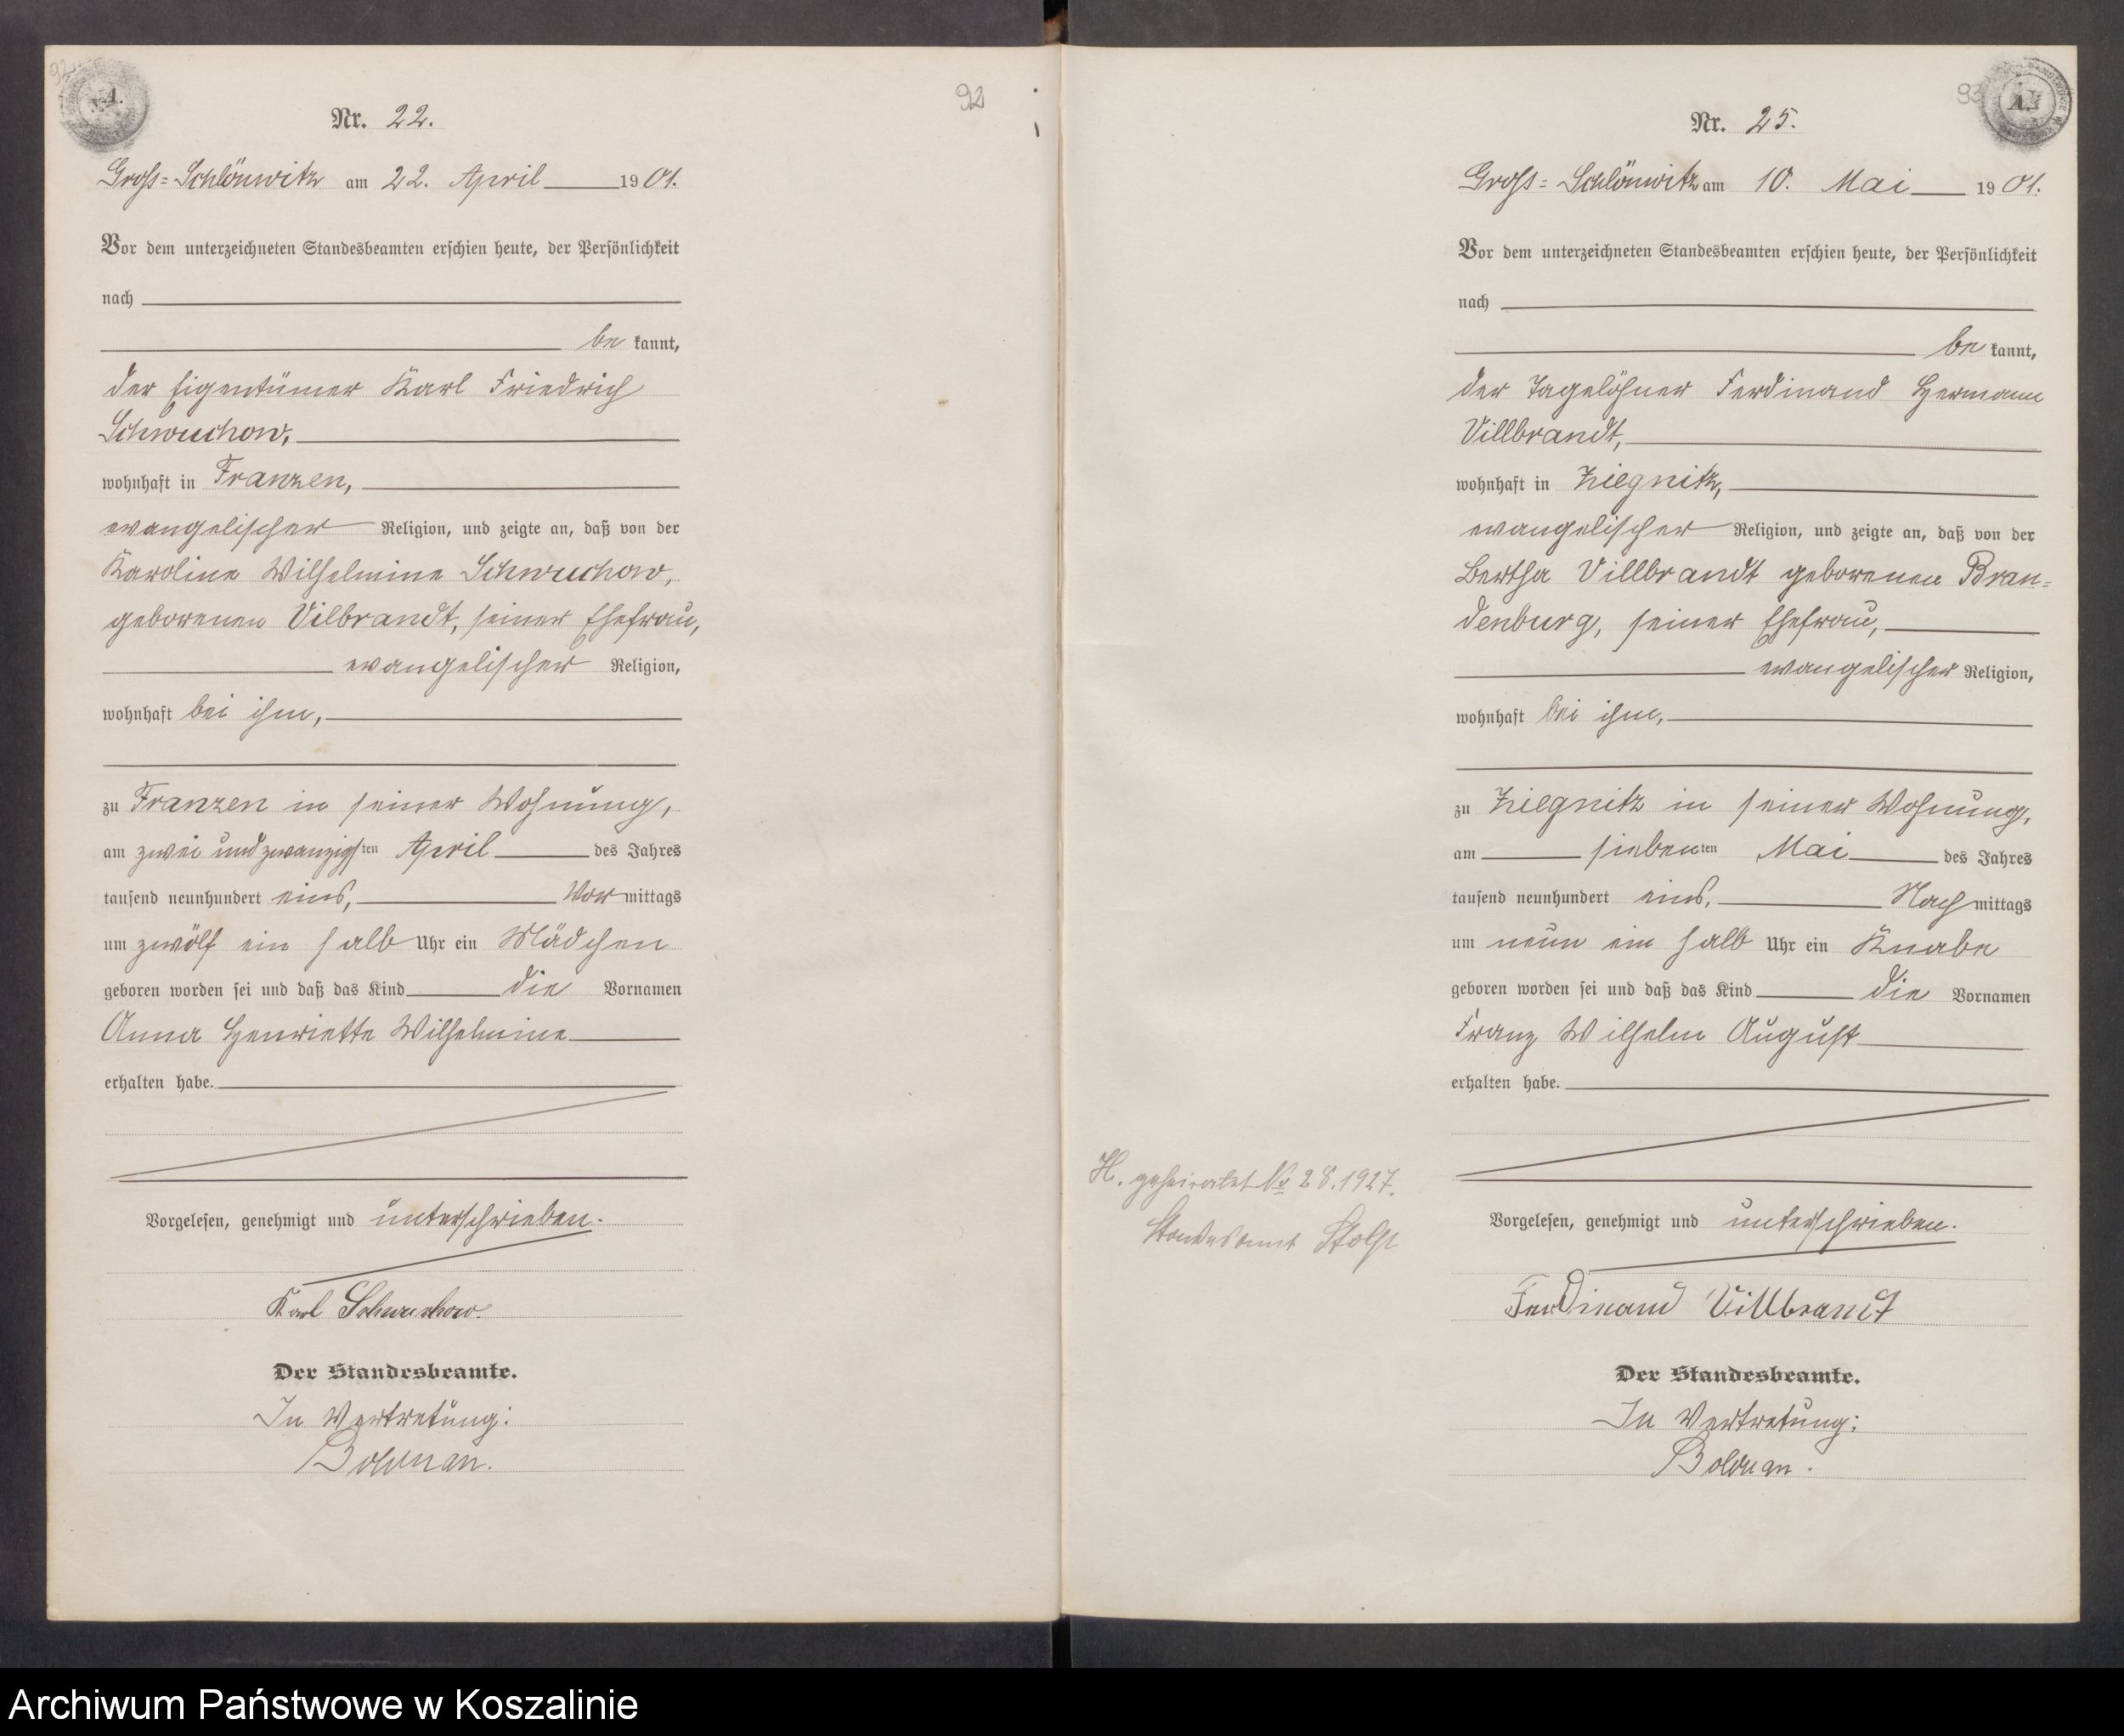 92
Nr. 22.
Gross=Schlönwitz am 22. April 1901.
Vor dem unterzeichneten Standesbeamten erschien heute, der Persönlichkeit
nach
be kannt,
der Eigentümer Karl Friedrich
Schwuchow,
wohnhaft in Franzen,
evangelischer Religion, und zeigte an, daß von der
Karoline Wilhelmine Schwuchow,
geborenen Vilbrandt, seiner Ehefrau,
evangelischer Religion,
wohnhaft bei ihm,
zu Franzen in seiner Wohnung,
am zwei und zwanzigsten April des Jahres
tausend neunhundert eins, Vor mittags
um zwölf ein halb Uhr ein Mädchen
geboren worden sei und daß das Kind die Vornamen
Anna Henriette Wilhelmine
erhalten habe.
Vorgelesen, genehmigt und unterschrieben.
Karl Schwuchow.
Der Standesbeamte.
In Vertretung:
93
Nr. 25.
Gross=Schlönwitz am 10. Mai 1901.
Vor dem unterzeichneten Standesbeamten erschien heute, der Persönlichkeit
nach
be kannt,
der Tagelöhner Ferdinand Hermann
Villbrandt,
wohnhaft in Ziegnitz,
evangelischer Religion, und zeigte an, daß von der
Bertha Villbrandt geborenen Bran=
denburg, seiner Ehefrau,
evangelischer Religion,
wohnhaft bei ihm,
zu Ziegnitz in seiner Wohnung,
am siebenten Mai des Jahres
tausend neunhundert eins, Nach mittags
um neun ein halb Uhr ein Knabe
geboren worden sei und daß das Kind die Vornamen
Franz Wilhelm August
erhalten habe.
H. geheiratet Nr 28.1927.
Standesamt Stolp
Vorgelesen, genehmigt und unterschrieben.
Ferdinand Villbrandt
Der Standesbeamte.
In Vertretung:
Archiwum Państwowe w Koszalinie